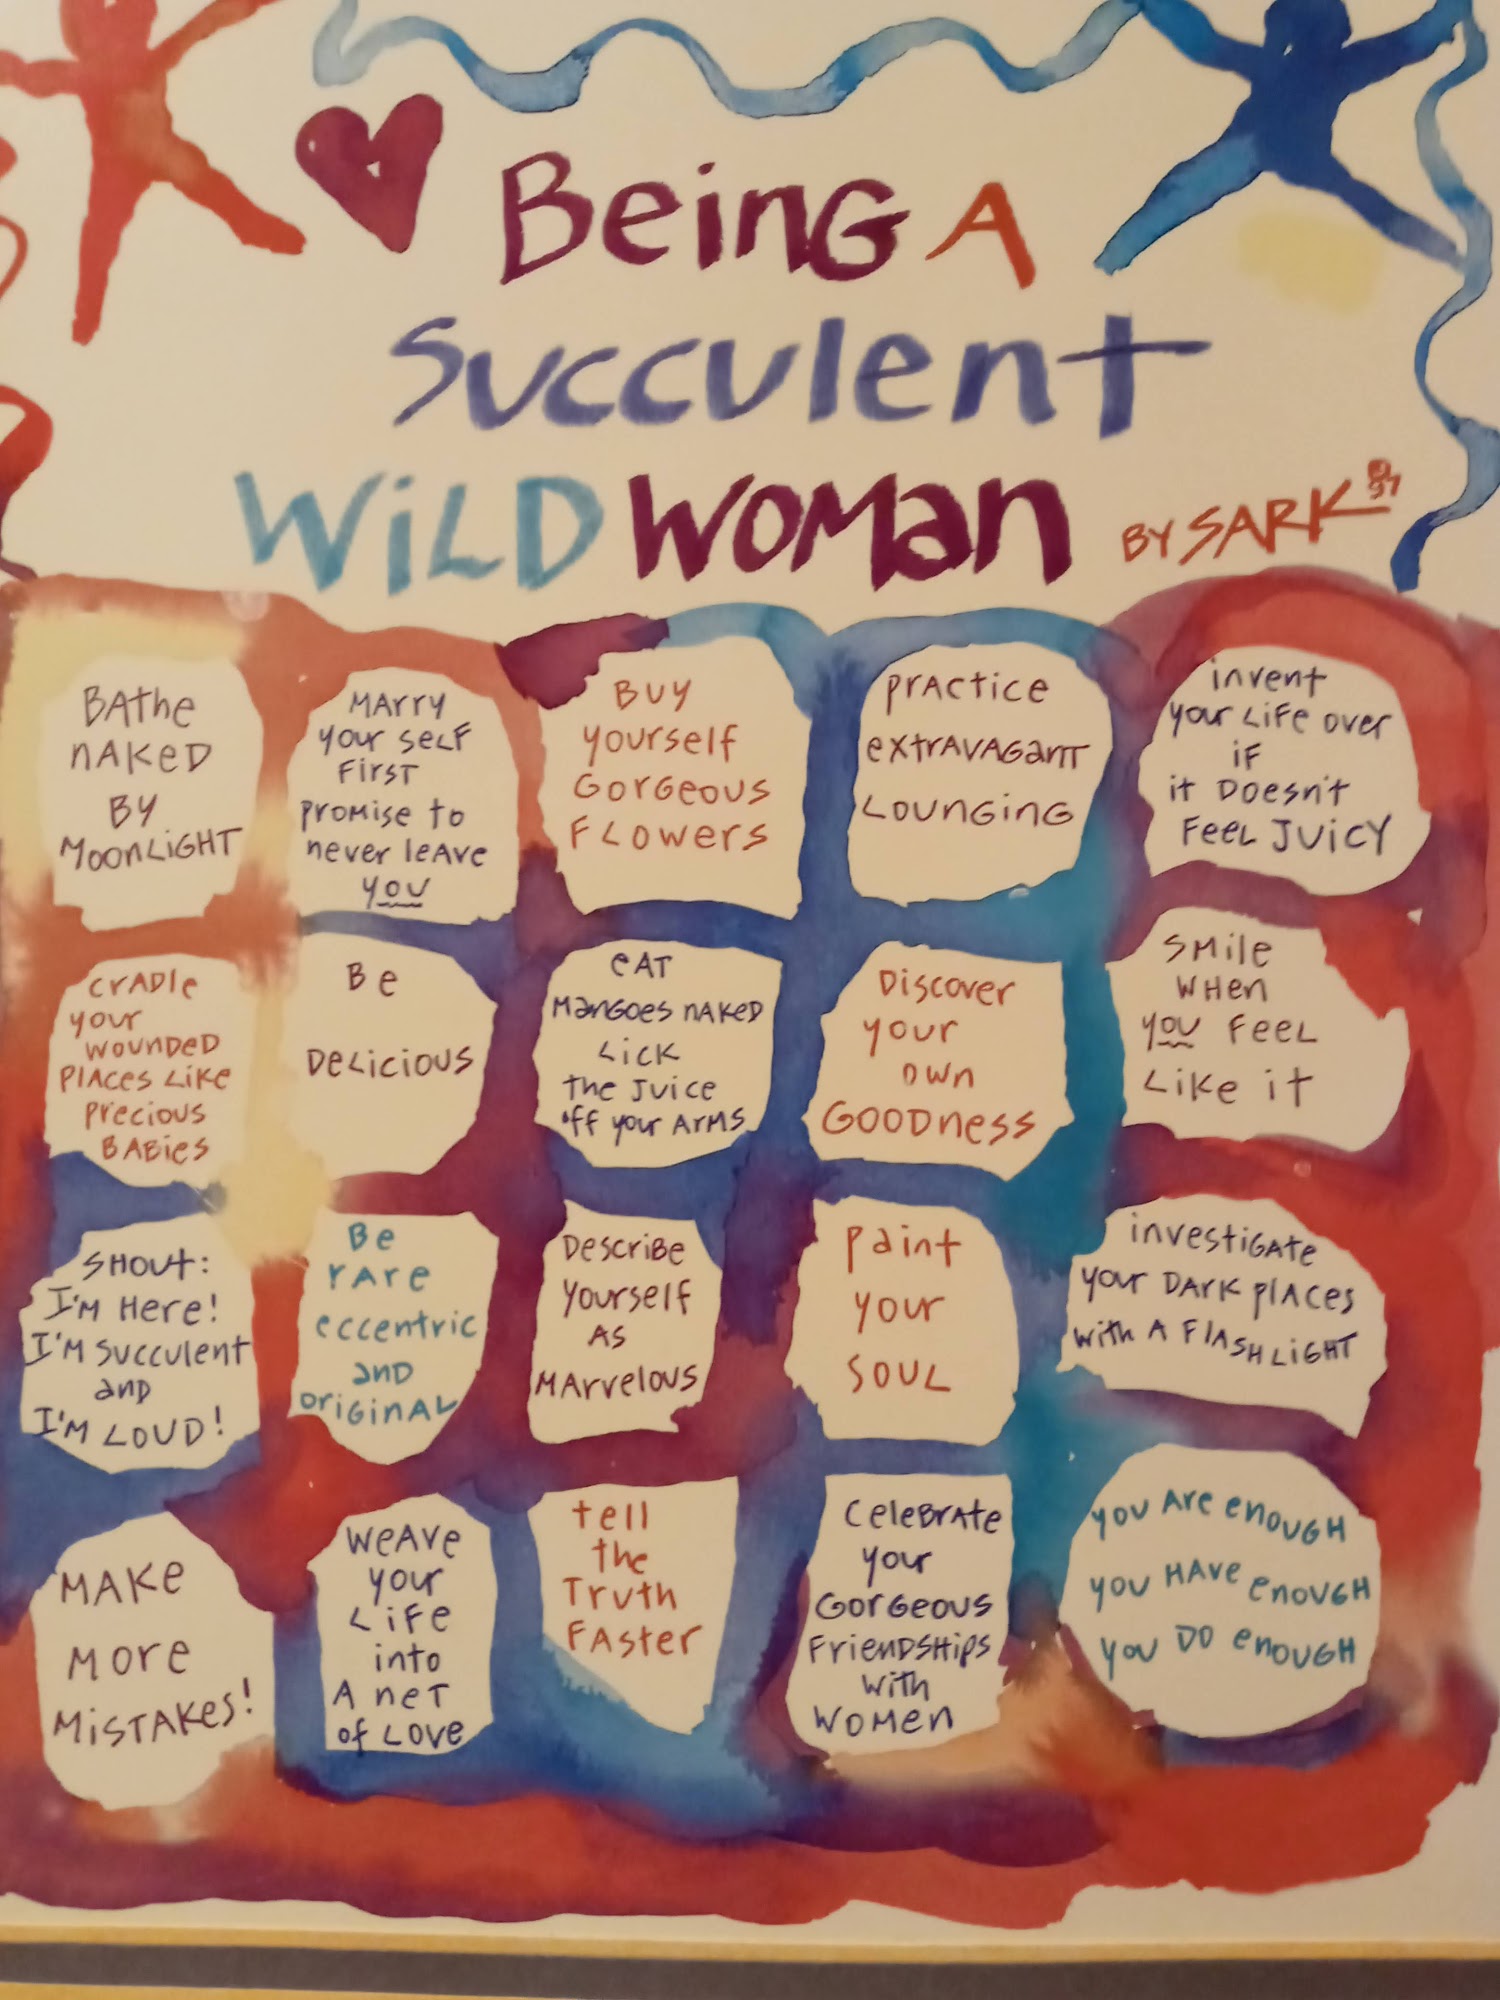 Being A
Succulent
WiLD WOMan
BY SARK © 97
BAthe
nAKeD
BY
MOOnLiGHT
MArry
your seLF
First
promise to
never leAve
you
BUY
yourself
Gorgeous
FLowers
prActice
extrAvAGanT
LOUNGiNG
invent
your LiFe over
iF
it Doesn't
FeeL JUiCY
crADle
your
wounDeD
plAces Like
precious
BABies
Be
DeLicious
eAT
MANGoes nAKeD
Lick
the Juice
off your ArMs
Discover
your
own
GOODness
SMile
wHen
you FeeL
Like it
SHout:
I'M Here!
I'M Succulent
anD
I'M LOUD!
Be
rAre
eccentric
anD
OriGinAL
DescriBe
yourself
As
MArvelous
paint
your
SOUL
investiGAte
your DArk plAces
with A FlAsHLiGHT
MAKe
More
MiSTAKes!
WeAve
your
LiFe
into
A neT
of Love
tell
the
Truth
FAster
CeleBrAte
your
GorGeous
FrienDSHips
with
WOMen
you Are enouGH
you HAve enouGH
you DO enouGH